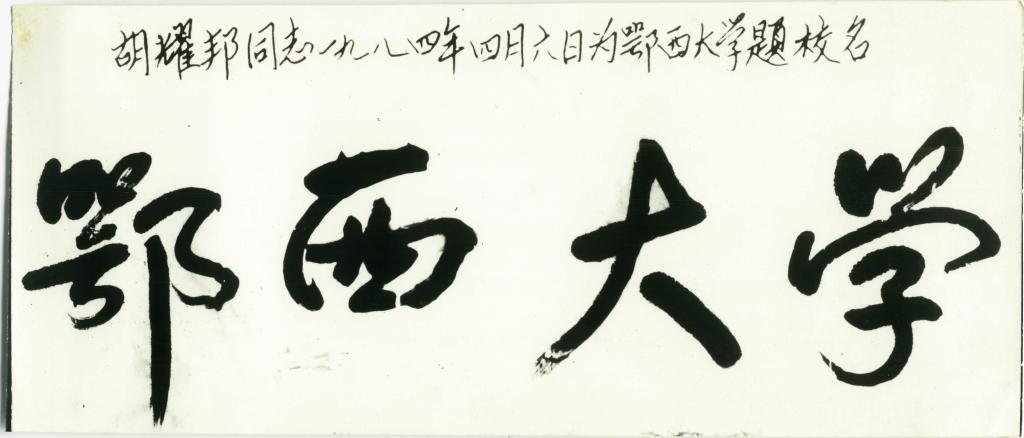 胡耀邦同志一九八四年四月六日为鄂西大学题校名
鄂西大学